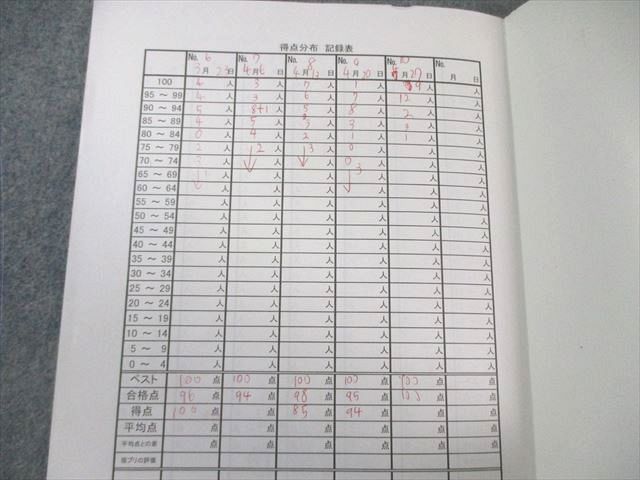 得点分布 記録表
No. 6 No. 7 No. 8 No. 9 No. 10 No.
3月23日 4月6日 4月13日 4月20日 4月27日 月 日
100 人 3人 7人 1人 人 人
95 ～ 99 4人 3人 6人 7人 12人 人
90 ～ 94 5人 8+1人 5人 8人 2人 人
85 ～ 89 4人 5人 3人 3人 人 人
80 ～ 84 0人 4人 2人 1人 1人 人
75 ～ 79 2人 2人 3人 0人 人 人
70 ～ 74 3人 人 人 0人 人 人
65 ～ 69 1人 人 人 3人 人 人
60 ～ 64 人 人 人 人 人 人
55 ～ 59 人 人 人 人 人 人
50 ～ 54 人 人 人 人 人 人
45 ～ 49 人 人 人 人 人 人
40 ～ 44 人 人 人 人 人 人
35 ～ 39 人 人 人 人 人 人
30 ～ 34 人 人 人 人 人 人
25 ～ 29 人 人 人 人 人 人
20 ～ 24 人 人 人 人 人 人
15 ～ 19 人 人 人 人 人 人
10 ～ 14 人 人 人 人 人 人
5 ～ 9 人 人 人 人 人 人
0 ～ 4 人 人 人 人 人 人
ベスト 100点 100点 100点 100点 100点 点
合格点 96点 94点 98点 95点 100点 点
得点 100点 点 85点 94点 点 点
平均点 点 点 点 点 点 点
平均点との差 点 点 点 点 点 点
宿プリの評価